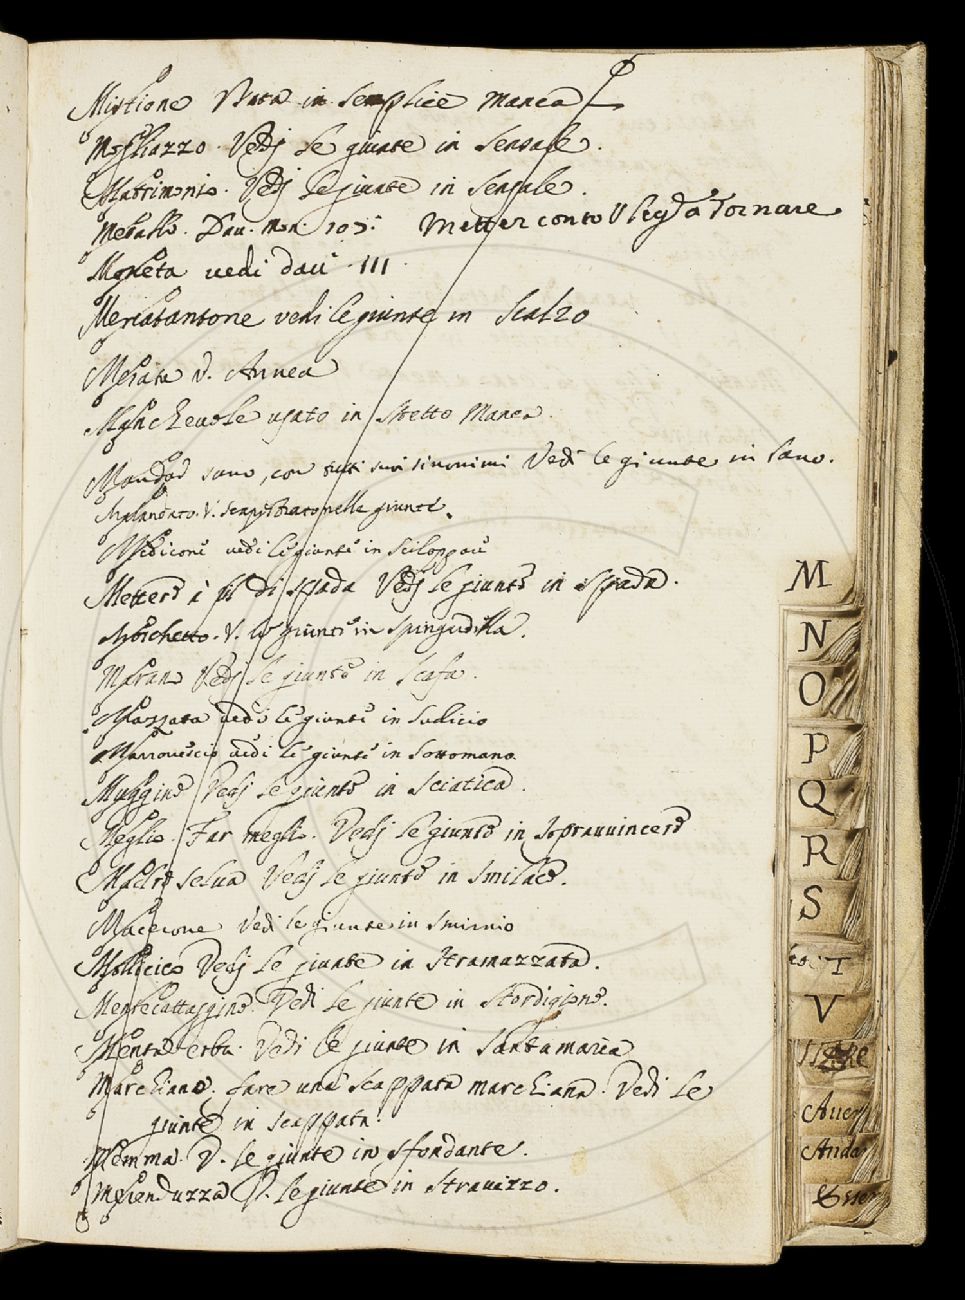 Mistione Usata in semplice manca
Mogliazzo. Vedj le giunte in Sensale.
Matrimonio. Vedj le giunte in Sensale.
Metallo. Dav. Mon. 107. Metter conto V leg a Tornare
Moneta vedi dav 111
Meriatantone vedi le giunte in Scalzo
Mesata v. Annea
Manchevole usato in stretto Manca
sano, con tutti suoi sinonimi Vedi le giunte in Sano.
V. nelle giunte.
Mediconi vedi le giunte in Sciloppare
Mettere à fil di spada Vedj le giunte in Spada.
Moschetto. V. le giunte in Spingardella.
Marano Vedj le giunte in Scafa.
Mazzata vedi le giunte in Sudicio
Manrovescio vedi le giunte in Sottomano
Vedj le giunte in Sciatica.
Meglio. Far meglio. Vedj le giunte in Sopravvincere
Madre selva Vedj le giunte in Smilace.
Macerone Vedi le giunte in Smirnio
Mollicico Vedj le giunte in Stramazzata.
Mentecattaggine. Vedi le giunte in Stordigione.
Menta erba. Vedi le giunte in Santamaria
Marchiano. fare una scappata marchiana. Vedi le
giunte in scappata.
Memma. V. le giunte in sfondante.
Merenduzza V. le giunte in Stravizzo.
M
N
O
P
Q
R
S
T
V
Aver
Anda
Esser